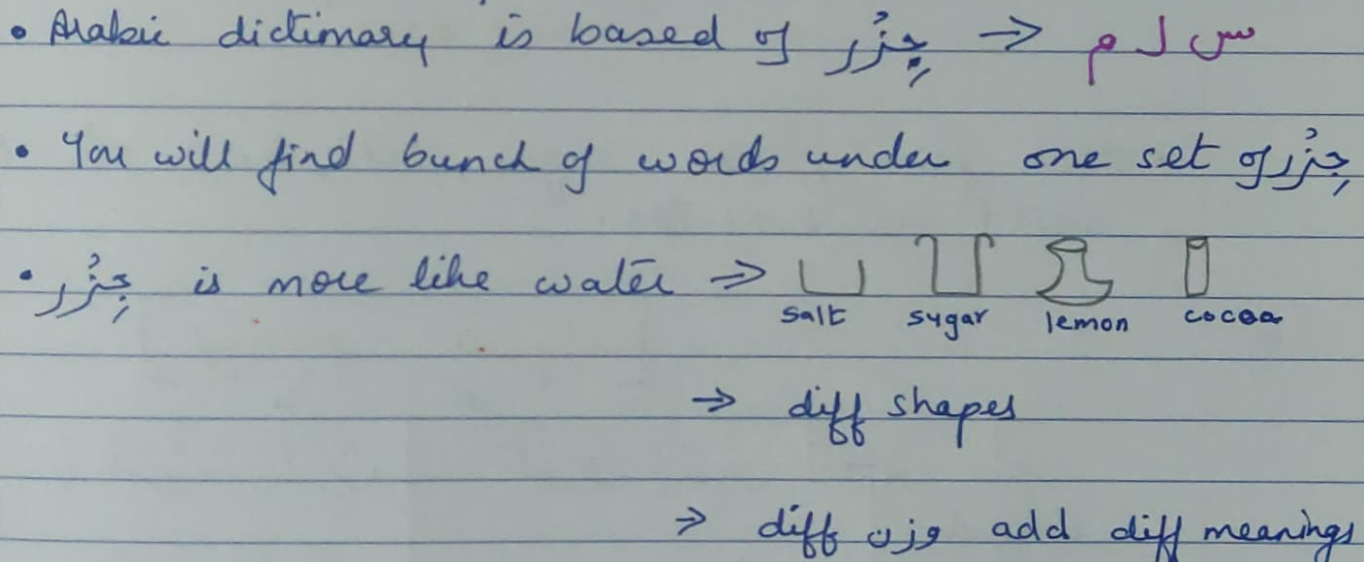 • Arabic dictionary is based of جِزْر ⇒ س ل م
• You will find bunch of words under one set of جِزْر
• جِزْر is more like water ⇒
salt sugar lemon cocoa
⇒ diff shapes
⇒ diff وزن add diff meanings